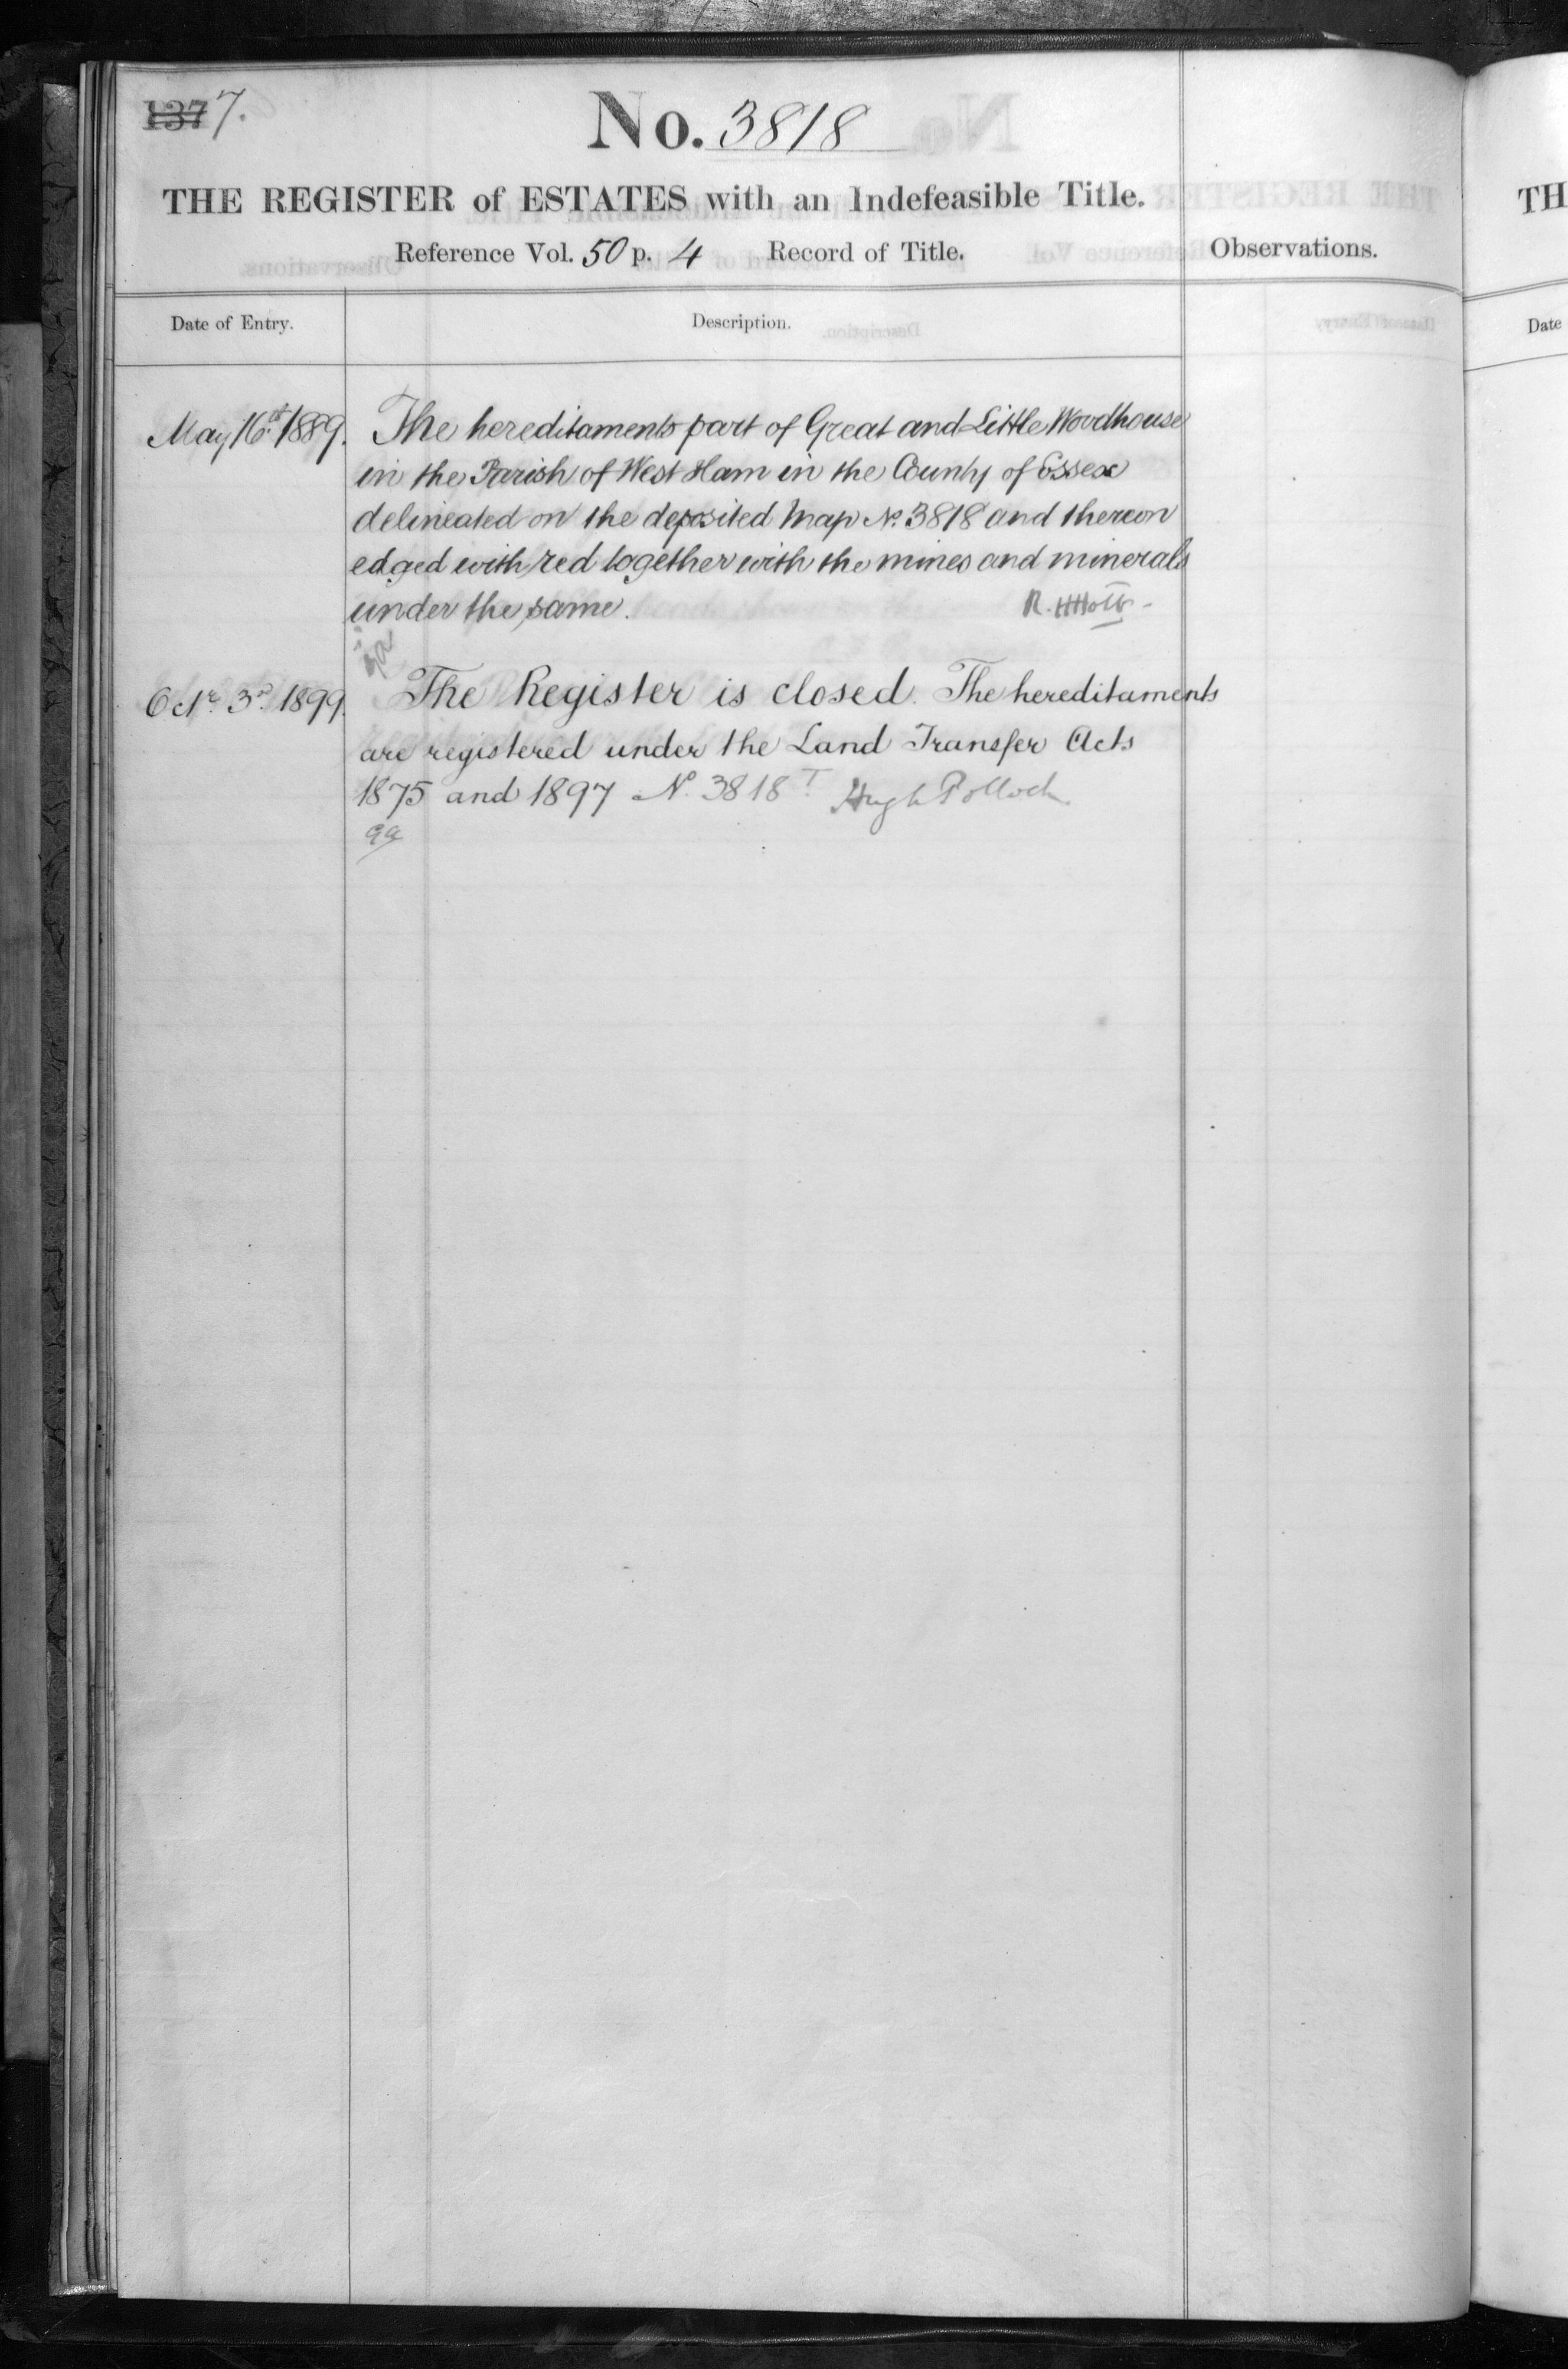 137 7.
No. 3818
THE REGISTER of ESTATES with an Indefeasible Title.
Reference Vol. 50 p. 4 Record of Title.
Observations.
Date of Entry.
Description.
May 16th 1889. The hereditaments part of Great and Little Woodhouse
in the Parish of West Ham in the County of Essex
delineated on the deposited Map No. 3818 and thereon
edged with red together with the mines and minerals
under the same. R. H Holt
Octr. 3rd 1899. The Register is closed. The hereditaments
are registered under the Land Transfer Acts
1875 and 1897 No. 3818 T. Hugh Pollock
TH
Date